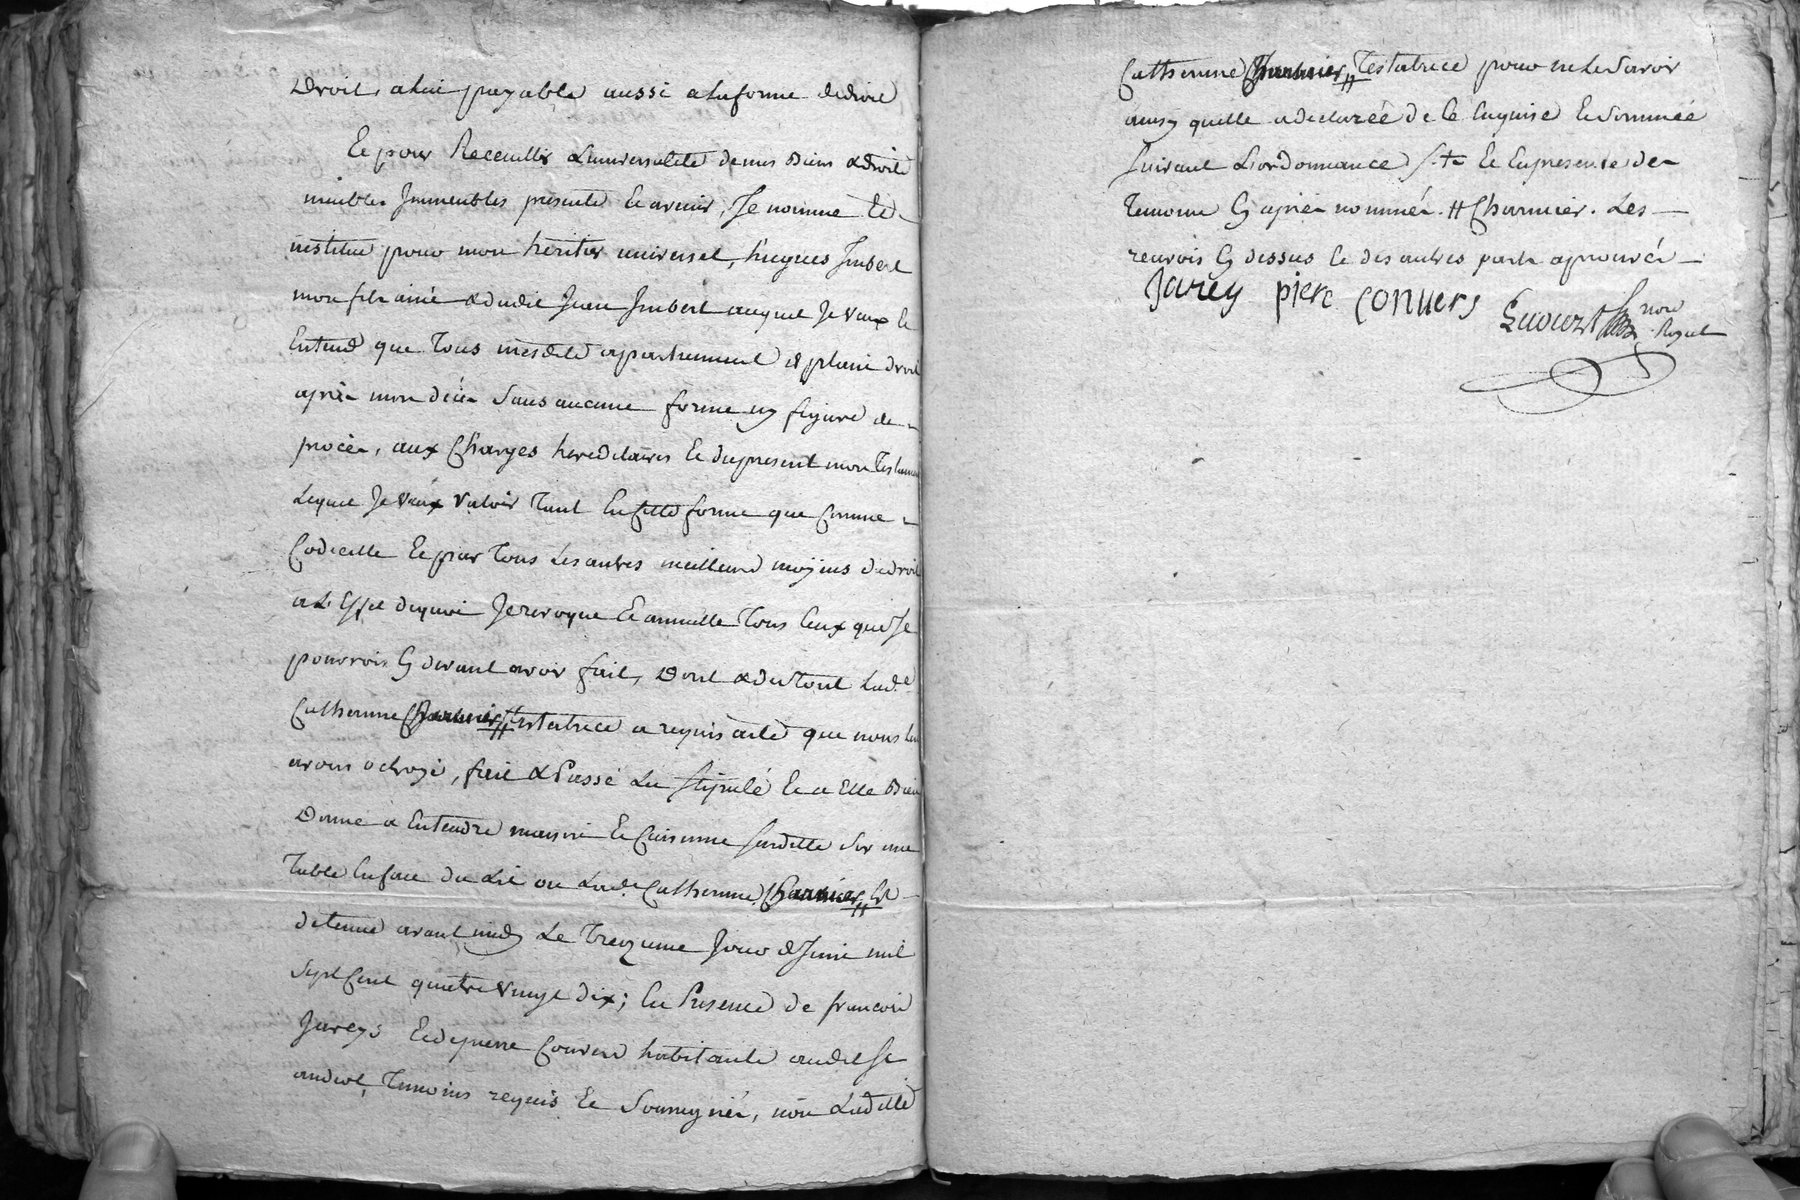 Droit, a lui payable aussi a la forme dedroit
Et pour Receuillir Luniversalité de mes Biens & droits
meubles Immeubles presents et avenir, Je nomme et
institue pour mon heritier universel, hugues Imbert
mon fils ainé & dudit Jean Imbert auquel Je vaux et
Entend que Tous mesdits apartiennent de plain droit
après mon décès sans aucune forme ny figure de
procès, aux Charges hereditaires et du present mon Testament
Lequel Je vaux valoir Tant En Cette forme que Comme
Codicille et par Tous Les autres meilleurs moyens de droit
a L'effet dequoi Je revoque et annulle Tous Ceux que Je
pourrois Cy devant avoir fait, Dont & du Tout Lad.e
Catherine testatrice a requis acte que nous lui
avons octroyé, fait & Passé Lu stipulé et a Elle Bien
Donné a Entendre maison et Cuisinne sur une
Table En face du Lit ou Lad.e Catherine Est
detenue avant midy Le Treizieme Jour de Juin mil
Sept Cent quatre vingt dix; En Presence de francois
Jareys et de pierre Convers habitants audit St
andiol, Temoins requis et Soussignés, non Ladite
Catherine Testatrice pour ne le Savoir
ainsy quelle a declaréé de Ce Enquise et Sommée
suivant L'ordonnance et En presence de
Temoins Cy après nommés. # Charmier. Les
renvois Cy dessus et des autres parts aprouvés
Jareys piere Convers
nore Royal